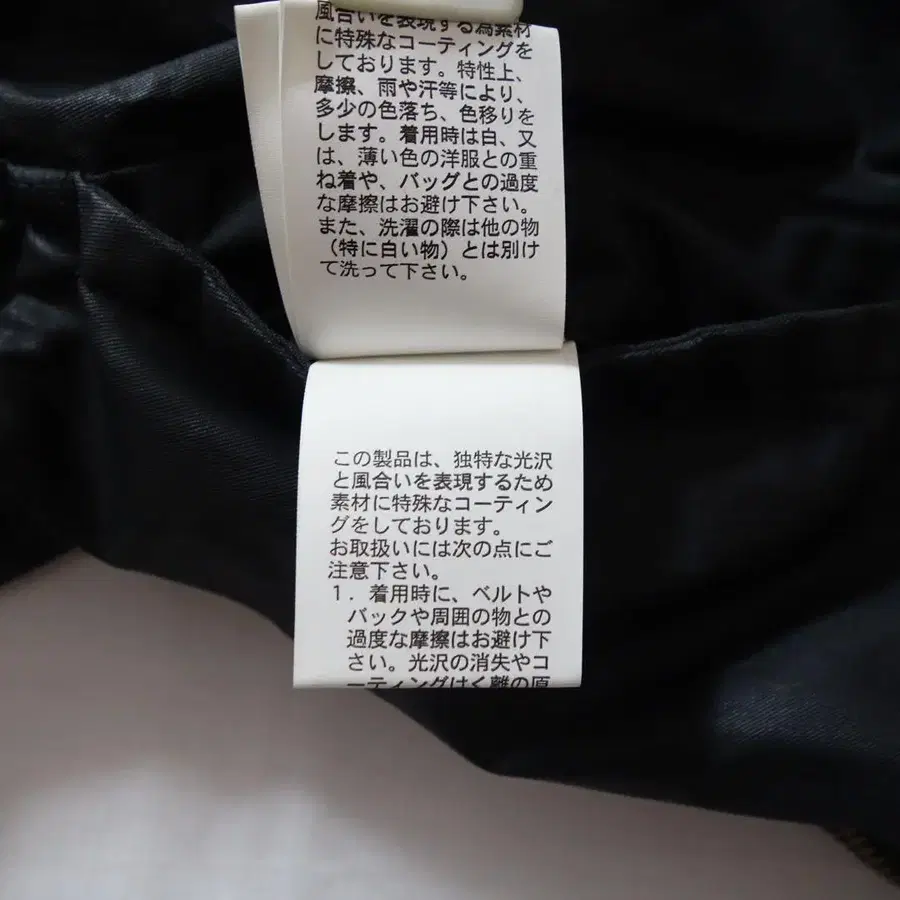 風合いを表現する為素材
に特殊なコーティングを
しております。特性上、
摩擦、雨や汗等により、
多少の色落ち、色移りを
します。着用時は白、又
は、薄い色の洋服との重
ね着や、バッグとの過度
な摩擦はお避け下さい。
また、洗濯の際は他の物
（特に白い物）とは別け
て洗って下さい。
この製品は、独特な光沢
と風合いを表現するため
素材に特殊なコーティン
グをしております。
お取扱いには次の点にご
注意下さい。
１．着用時に、ベルトや
バックや周囲の物との
過度な摩擦はお避け下
さい。光沢の消失やコ
ーティングはく離の原